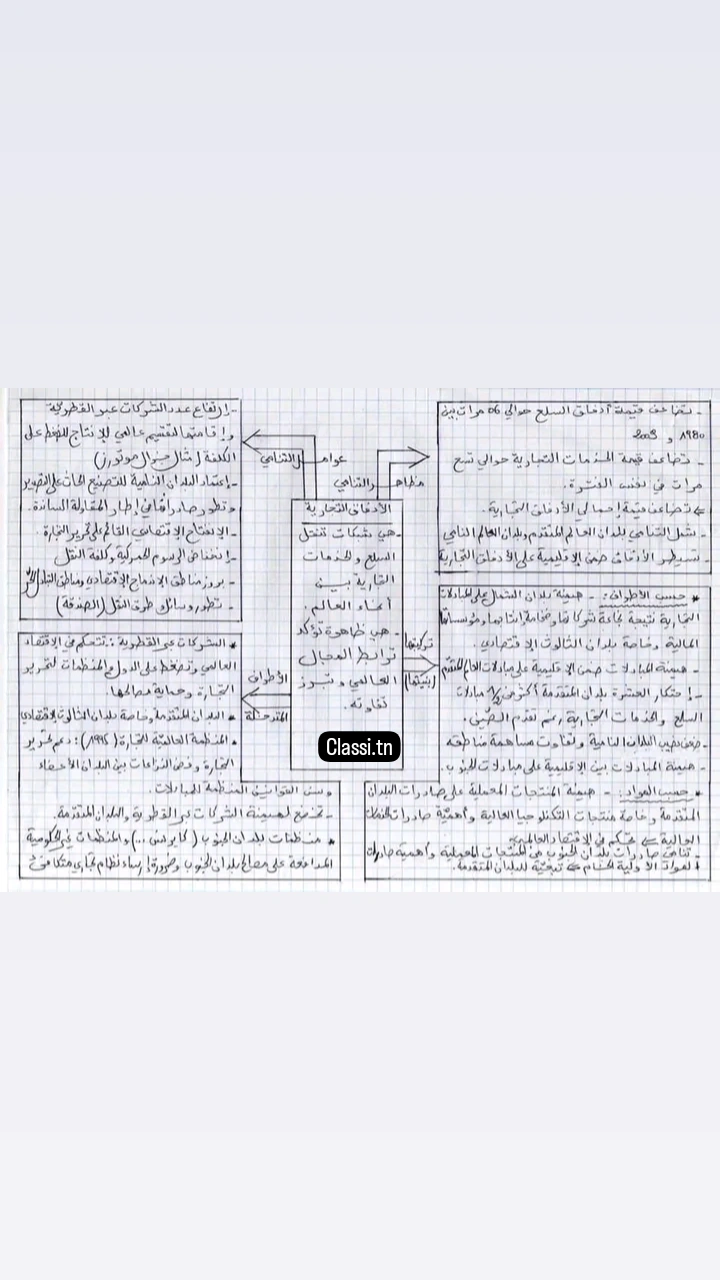 الأدفاق التجارية
- هي شبكات تنقل
السلع والخدمات
القارية بين
أنحاء العالم.
- هي ظاهرة تؤكد
ترابط المجال
العالمي وتبرز
تفاوته.
Classi.tn
مظاهر التنامي
- تضاعف قيمة أدفاق السلع حوالي 06 مرات بين
1980 و 2003
- تضاعف قيمة الخدمات التجارية حوالي تسع
مرات في نفس الفترة.
⇐ تضاعف قيمة إجمالي الأدفاق التجارية.
- شمل التنامي بلدان العالم المتقدم وبلدان العالم النامي
- تسيطر الأدفاق ضمن الإقليمية على الأدفاق التجارية
عوامل التنامي
- إرتفاع عدد الشركات عبر القطرية
وإقامتها لتقسيم عالمي للإنتاج للضغط على
الكلفة (مثال جنرال موتورز)
- إعتماد البلدان النامية للتصنيع الحاث على التصدير
وتطور صادراتها في إطار المقاولة الساندة.
- الإنفتاح الإقتصادي القائم على تحرير التجارة.
- إنخفاض الرسوم الجمركية وكلفة النقل
- بروز مناطق الإندماج الإقتصادي ومناطق التبادل الحر
- تطور وسائل وطرق النقل (الصندقة)
تركيبتها
(بنيتها)
* حسب الأطراف: - هيمنة بلدان الشمال على المبادلات
التجارية نتيجة نجاعة شركاتها وضخامة إنتاجها ومؤسساتها
المالية وخاصة بلدان الثالوث الإقتصادي.
- هيمنة المبادلات ضمن الإقليمية على مبادلات العالم المتقدم
- إحتكار العشرة بلدان المتقدمة أكثر من ½ مبادلات
السلع والخدمات التجارية رغم تقدم الصين.
- ضعف نصيب البلدان النامية وتفاوت مساهمة مناطقه
- هيمنة المبادلات بين الإقليمية على مبادلات الجنوب.
* حسب المواد: - هيمنة المنتجات المعملية على صادرات البلدان
المتقدمة وخاصة منتجات التكنولوجيا العالية وأهمية صادرات الخدمات
العالية ⇐ تحكم في الإقتصاد العالمي.
- تنامي صادرات بلدان الجنوب من المنتجات المعملية وأهمية صادرات
المواد الأولية الخام ⇐ تبعية للبلدان المتقدمة.
الأطراف
المتدخلة
* الشركات عبر القطرية: تتحكم في الإقتصاد
العالمي وتضغط على الدول والمنظمات لتحرير
التجارة وحماية مصالحها.
* البلدان المتقدمة وخاصة بلدان الثالوث الإقتصادي
* المنظمة العالمية للتجارة (1995): دعم تحرير
التجارة وفض النزاعات بين البلدان الأعضاء
وسن القوانين المنظمة للمبادلات.
- تخضع لهيمنة الشركات عبر القطرية والبلدان المتقدمة.
* منظمات بلدان الجنوب (كايرنس ...) والمنظمات غير الحكومية
المدافعة على مصالح بلدان الجنوب وضرورة إرساء نظام تجاري متكافئ